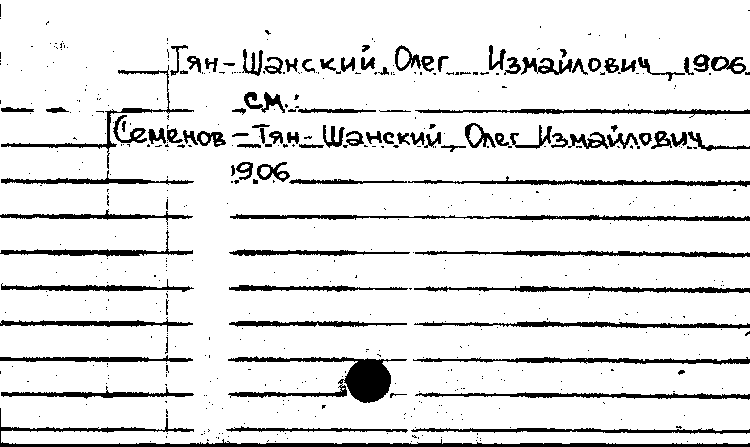 Тян-Шанский, Олег Измайлович, 1906
см.:
Семенов-Тян-Шанский, Олег Измайлович,
1906